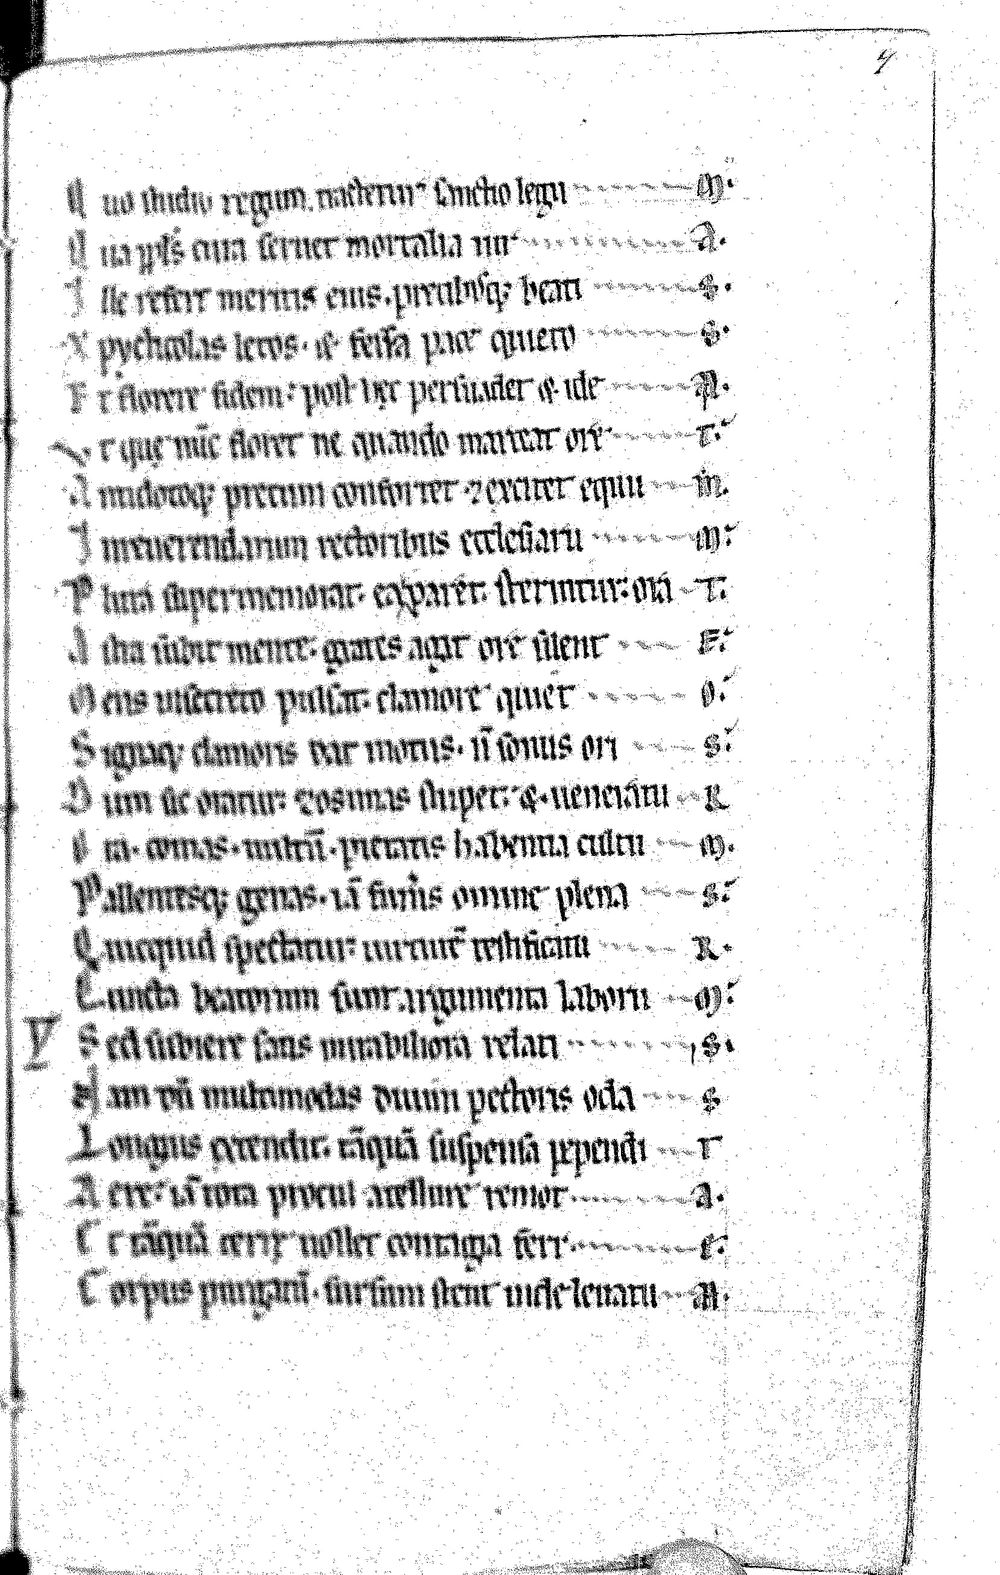 7
uo studio regum nacterint sanctio legu M.
ua cura seruet mortalia A.
I lle refert meritis eius precibusq; beati S.
X pycholas letos & fessa pace quieto S.
E t florere fidem: post hec persuadet & ide M.
V t que nunc floret ne quando marceat ore T.
A ntidotoq; precum confortet & excitet equu M.
I nreuerendarum rectoribus ecclesiaru M.
P lura supermemorat: sternuntur: ora T.
A sta subit mente: grates agit ore silent E.
M ens insecreto pulsat: clamore quiet O.
S ignaq; clamoris dat motus. n̄ sonus ori S.
D um sic oratur: Zosimas stupet: &. uenerātu R
comas. uultū. pietatis habentia cultu M.
P allentesq; genas. iā omine plena S.
Q uicquid spectatur: uirtutē testificatu R.
C uncta beatorum sunt argumenta laboru M.
V S ed subiere satis mirabiliora relati S.
N am dū multimodas diuini pectoris oda S
L ongius extendit: tāquā suspensa rependi T
A ere: iā tota procul a tellure remot A.
E t tāquā terre nollet contagia ferr E.
C orpus purgant. sursum stent inde leuatu M.